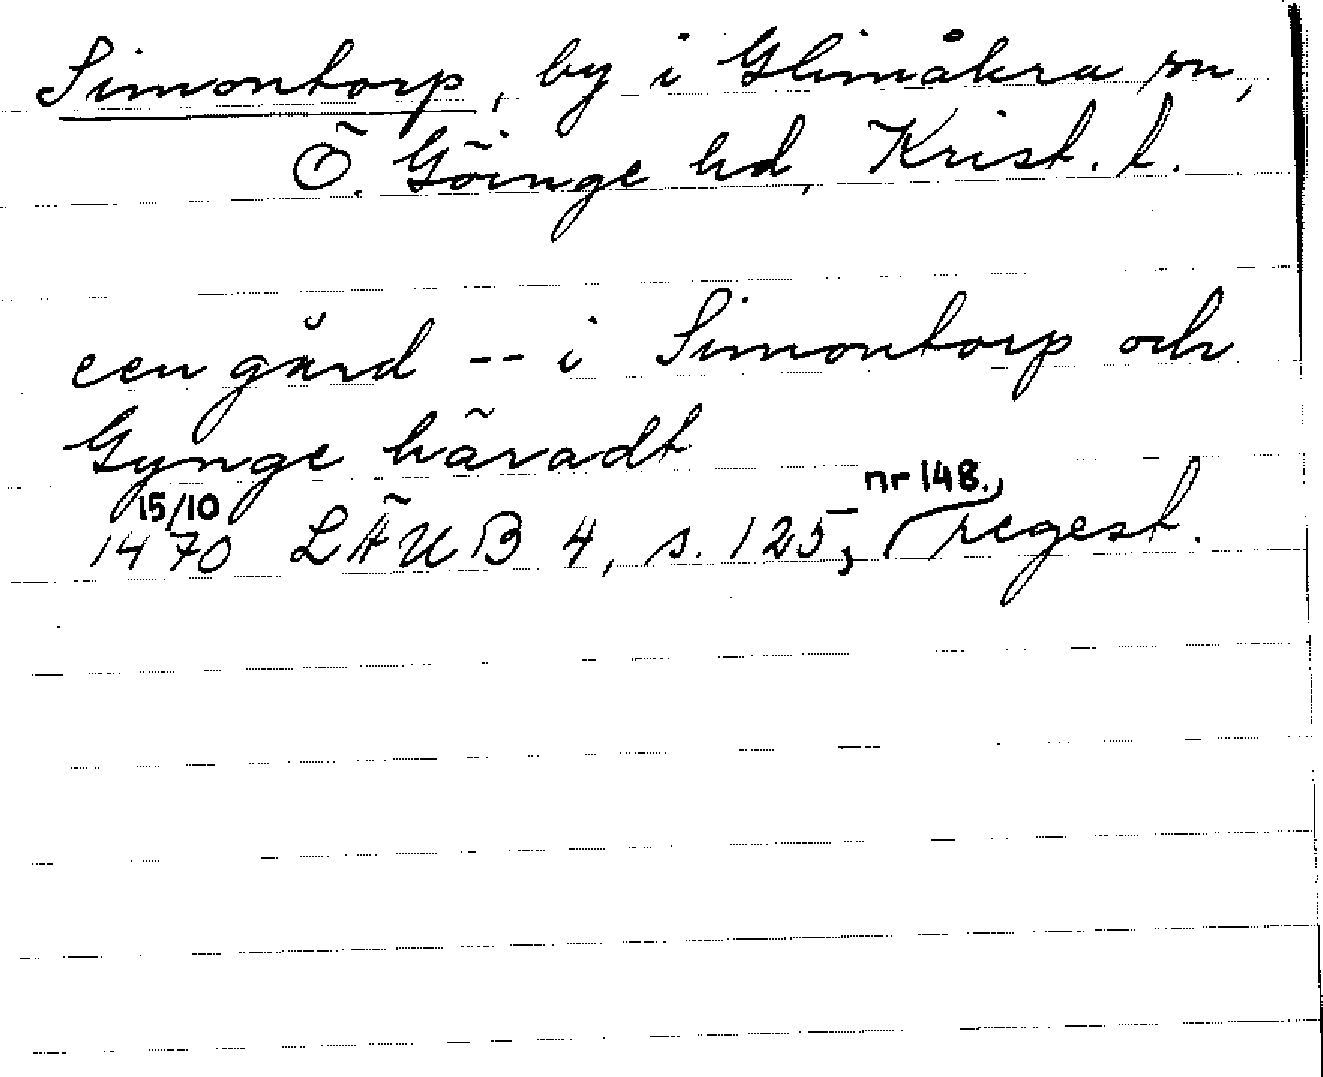 Simontorp, by i Glimåkra sn,
Ö. Göinge hd, Krist. l.
een gård -- i Simontorp och
Gynge häradt
15/10 nr 148.,
1470 LÄUB 4, s. 125, regest.